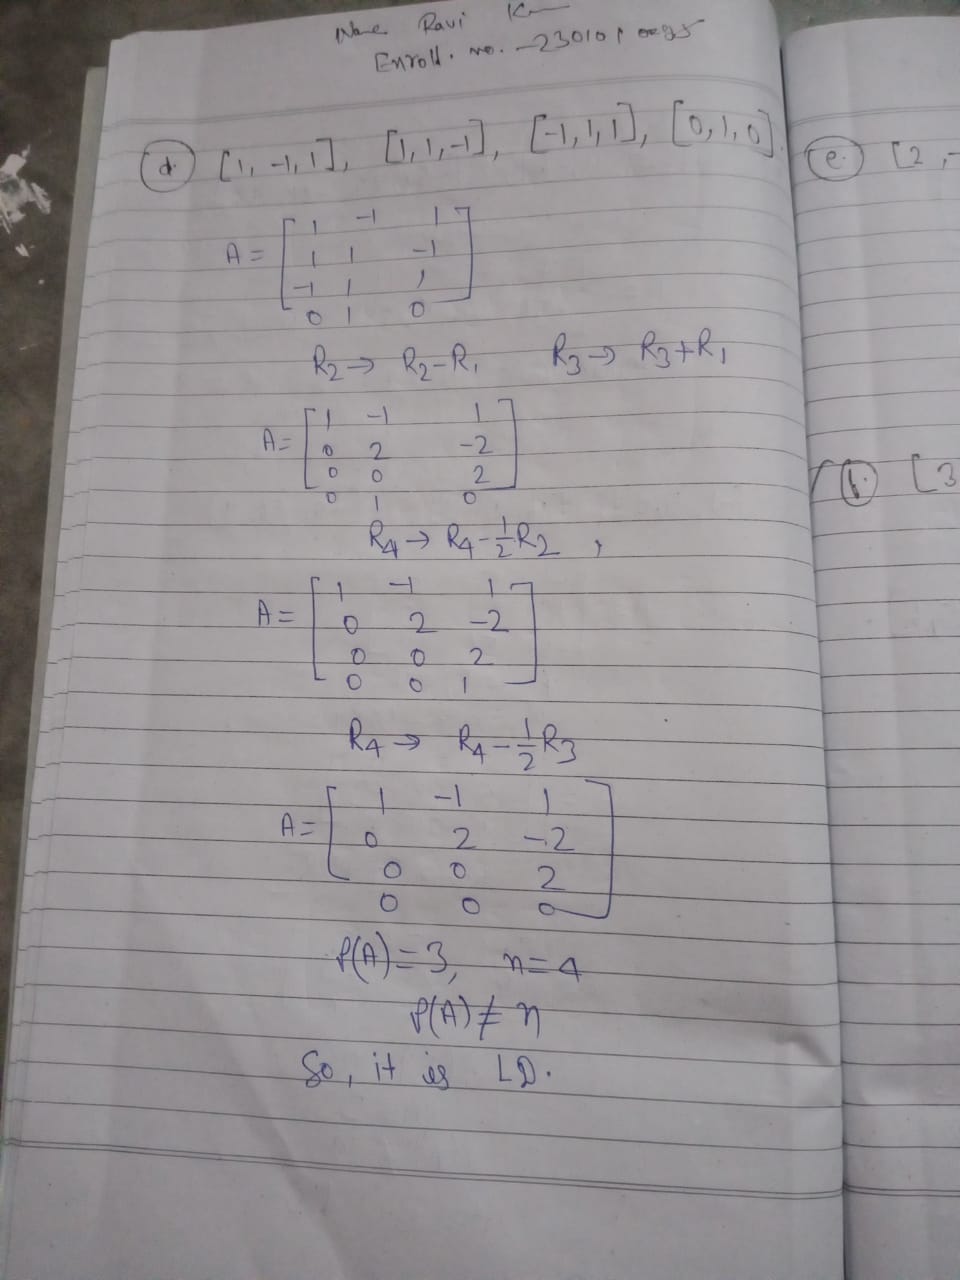 Name Ravi
Enroll. no.
d. [1, -1, 1], [1, 1, -1], [-1, 1, 1], [0, 1, 0].
A = [ 1 -1 1
1 1 -1
-1 1 1
0 1 0 ]
R2 → R2 - R1 R3 → R3 + R1
A = [ 1 -1 1
0 2 -2
0 0 2
0 1 0 ]
R4 → R4 - 1/2 R2 ,
A = [ 1 -1 1
0 2 -2
0 0 2
0 0 1 ]
R4 → R4 - 1/2 R3
A = [ 1 -1 1
0 2 -2
0 0 2
0 0 0 ]
ρ(A) = 3, n = 4
ρ(A) ≠ n
So, it is LD.
e. [2, -
[3